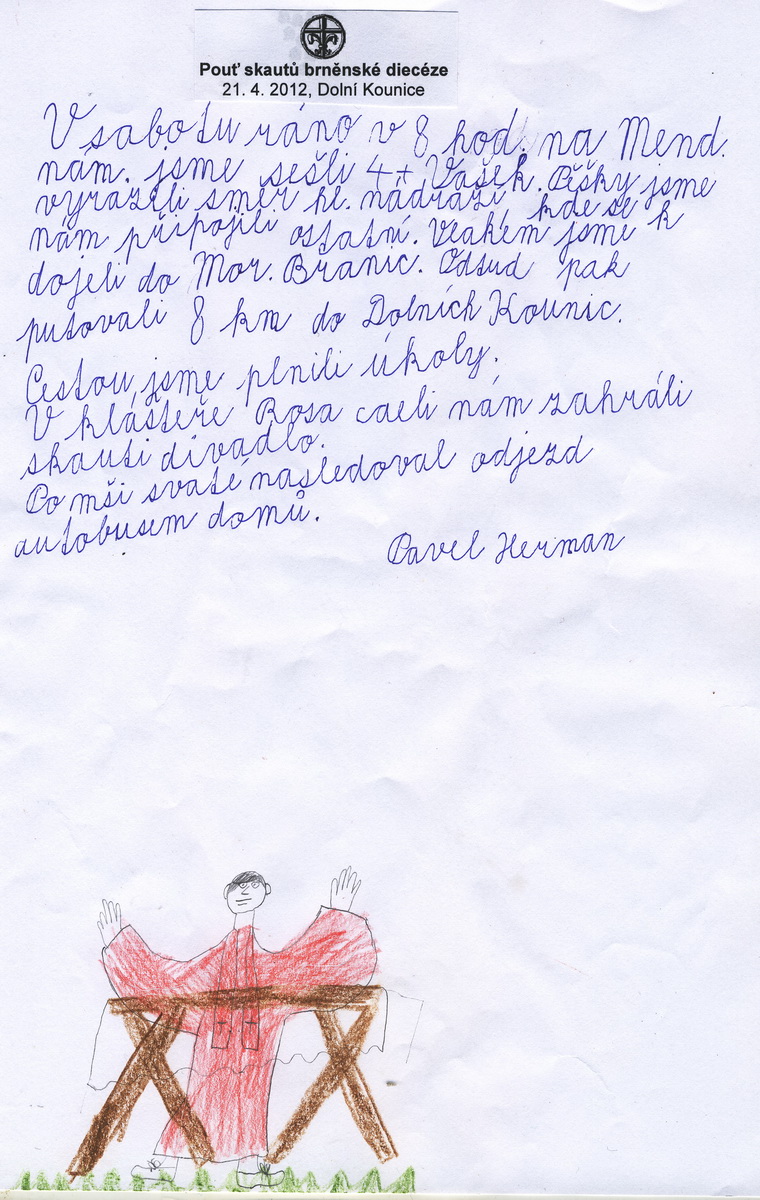 Pouť skautů brněnské diecéze
21. 4. 2012, Dolní Kounice
V sobotu ráno v 8 hod. na Mend.
nám. jsme sešli 4 + Vašek. Pěšky jsme
vyrazili směr hl. nádraží, kde se k
nám připojili ostatní. Vlakem jsme
dojeli do Mor. Bránic. Odsud pak
putovali 8 km do Dolních Kounic.
Cestou jsme plnili úkoly.
V klášteře Rosa caeli nám zahráli
skauti divadlo.
Po mši svaté následoval odjezd
autobusem domů.
Pavel Herman